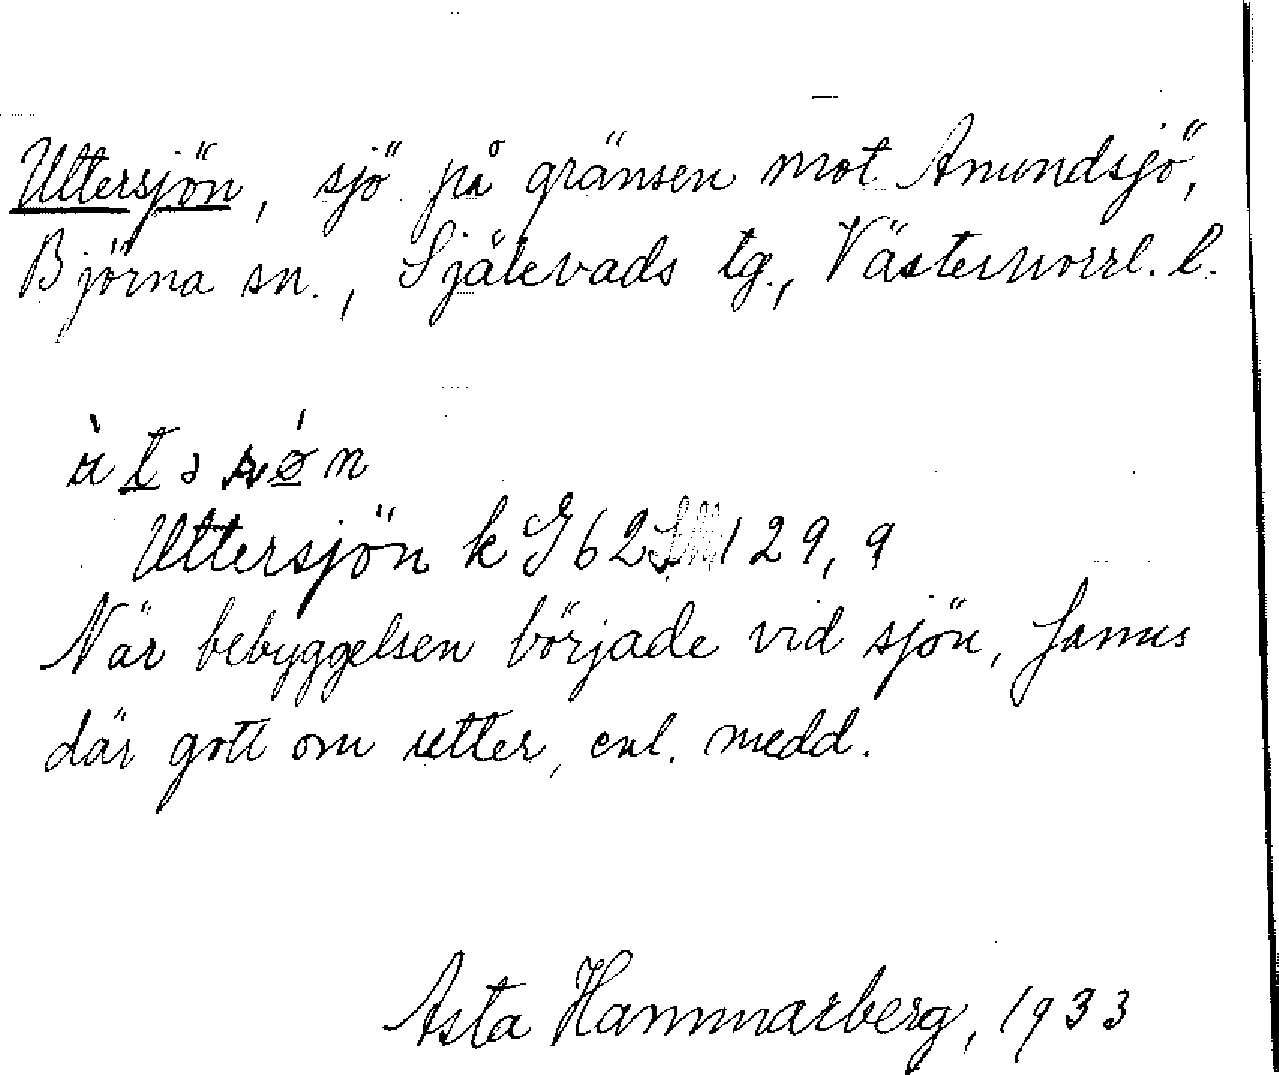 Uttersjön, sjö på gränsen mot Anundsjö,
Björna sn., Själevads tg., Västernorrl. l.
Uttersjön k G 62 129, 9
När bebyggelsen började vid sjön, fanns
där gott om utter, enl. medd.
Asta Hammarberg, 1933